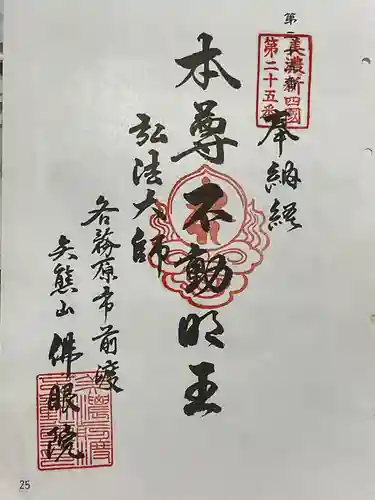 第
美濃新四國
第二十五番
奉納経
本尊不動明王
弘法大師
各務原市前渡
矢熊山 佛眼院
25